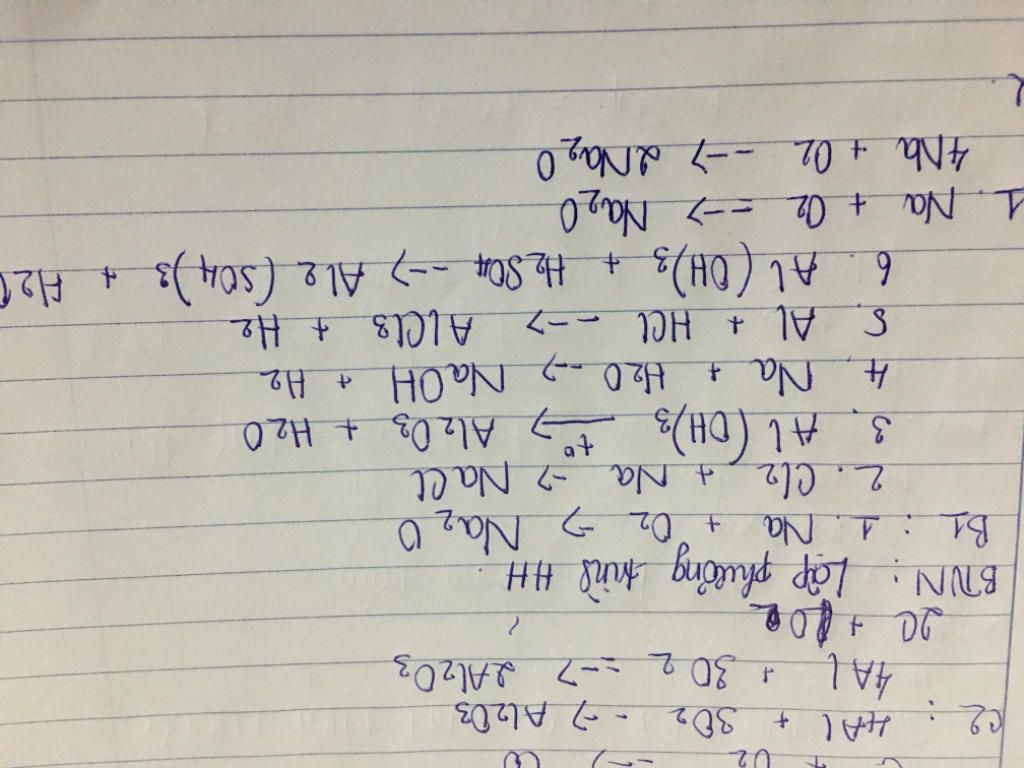 + O2 --> CO
C2: 4Al + 3O2 --> Al2O3
4Al + 3O2 =-> 2Al2O3
2C + O2
BTVN: Lập phương trình HH
B1: 1. Na + O2 -> Na2O
2. Cl2 + Na -> NaCl
3. Al(OH)3 t°→ Al2O3 + H2O
4. Na + H2O --> NaOH + H2
5 Al + HCl --> AlCl3 + H2
6. Al(OH)3 + H2SO4 --> Al2(SO4)3 + H2O
1. Na + O2 =-> Na2O
4Na + O2 --> 2Na2O
2.